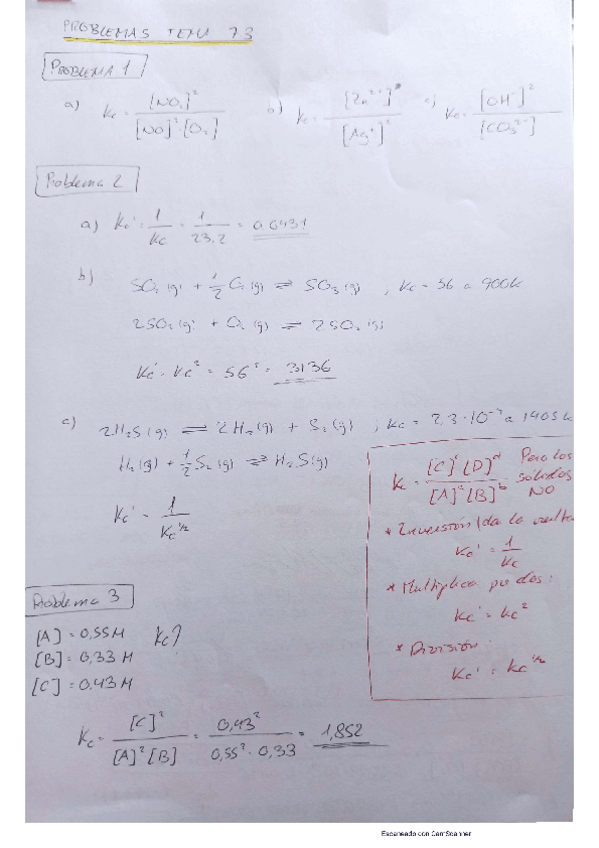 PROBLEMAS TEMA 73
PROBLEMA 1
a) Kc = [NO2]² / [NO]²·[O2] b) Kc = [Zn²⁺] / [Ag⁺]² c) Kc = [OH⁻]² / [CO3²⁻]
Problema 2
a) Kc' = 1/Kc = 1/23,2 = 0,0431
b)
SO2 (g) + 1/2 O2 (g) ⇌ SO3 (g) , Kc = 56 a 900K
2SO2 (g) + O2 (g) ⇌ 2SO3 (g)
Kc' = Kc² = 56² = 3136
c) 2H2S (g) ⇌ 2H2 (g) + S2 (g) , Kc = 2,3·10⁻⁴ a 1405 K
H2 (g) + 1/2 S2 (g) ⇌ H2S (g)
Kc' = 1 / Kc^½
K = [C]^c [D]^d / [A]^a [B]^b Pero los
sólidos
NO
* Inversión (da la vuelta
Kc' = 1/Kc
* Multiplica por dos:
Kc' = Kc²
* División:
Kc' = Kc^½
Problema 3
[A] = 0,55 M Kc?
[B] = 0,33 M
[C] = 0,43 M
Kc = [C]² / [A]² [B] = 0,43² / 0,55² · 0,33 = 1,852
Escaneado con CamScanner